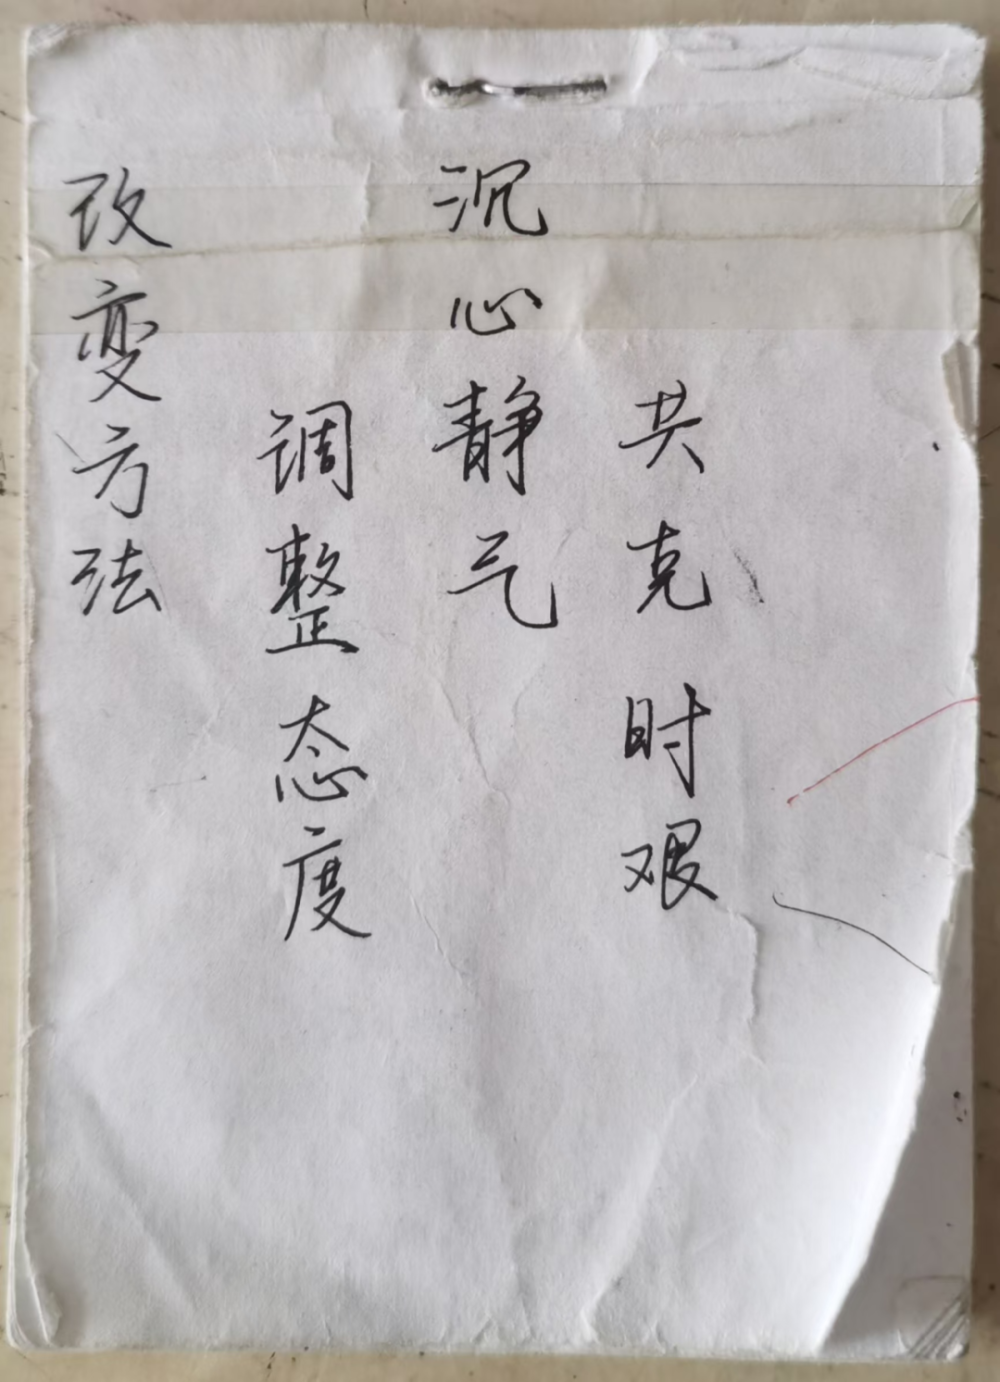 改变方法
调整态度
沉心静气
共克时艰